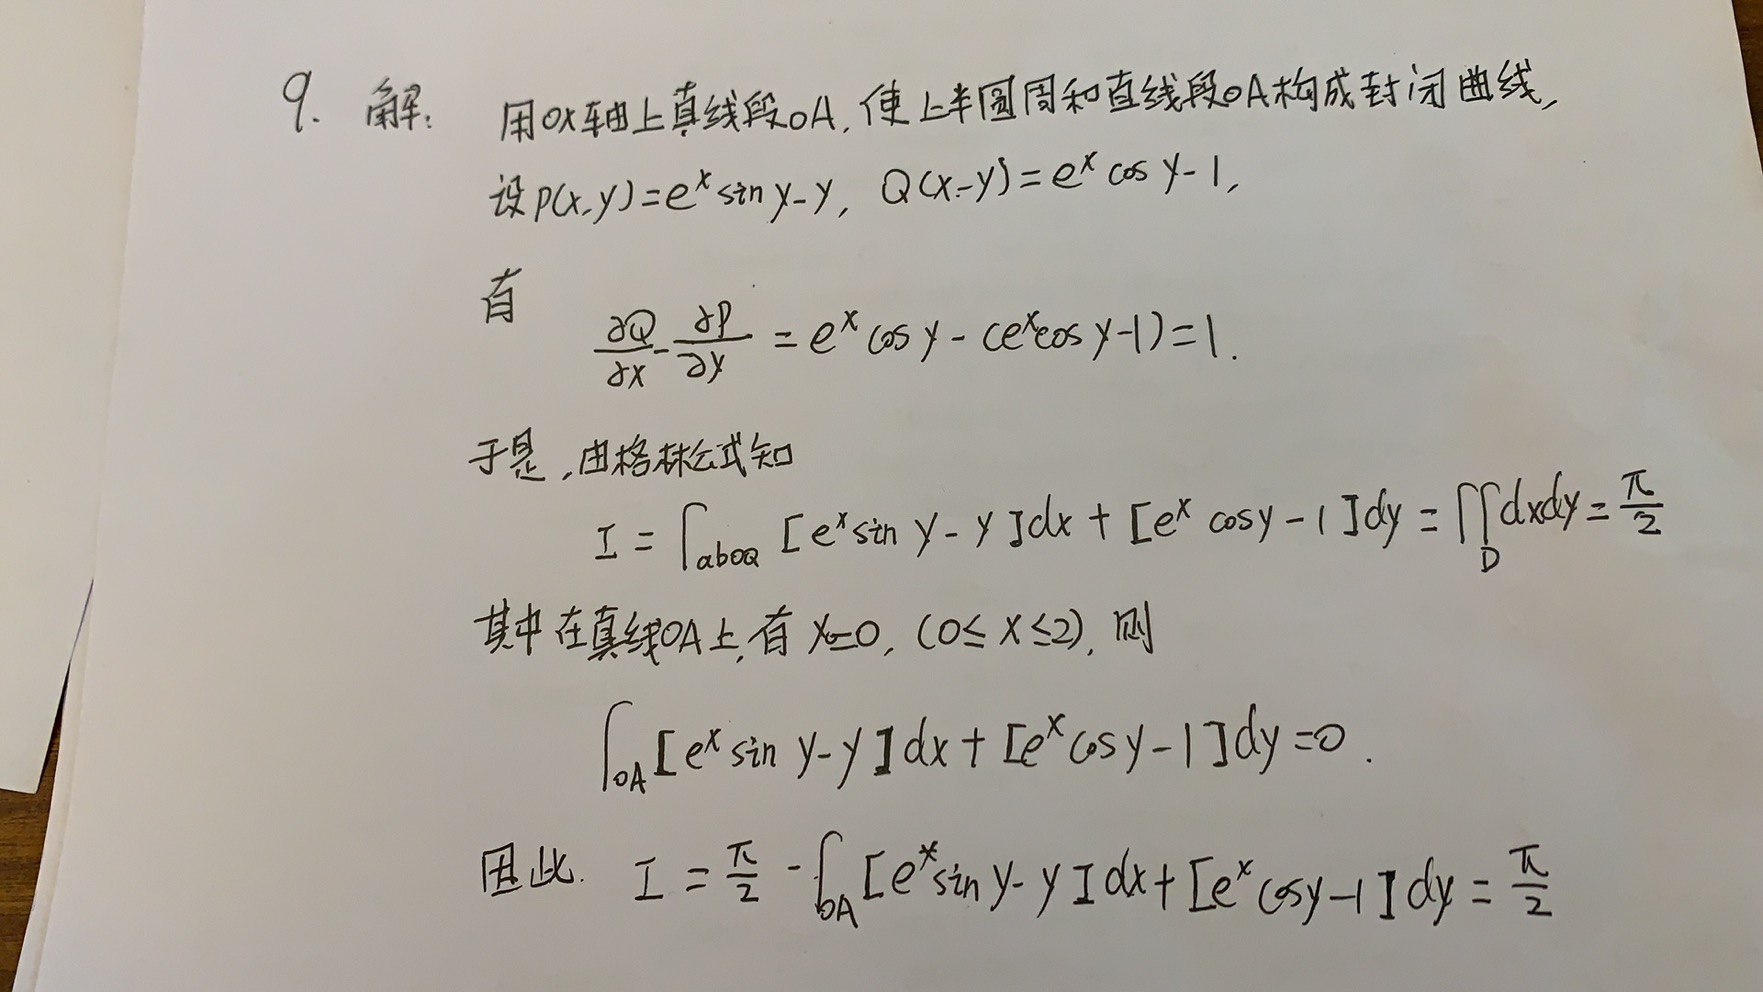 9. 解: 用ox轴上直线段OA,使上半圆周和直线段OA构成封闭曲线,
设P(x,y)=e^x sin y-y, Q(x-y)=e^x cos y-1,
有
∂Q/∂x - ∂P/∂y = e^x cos y - (e^x cos y-1)=1.
于是,由格林公式知
I = ∫_aboa [e^x sin y - y]dx + [e^x cos y - 1]dy = ∬_D dxdy = π/2
其中在直线OA上,有 y=0, (0≤x≤2), 则
∫_OA [e^x sin y-y]dx + [e^x cos y-1]dy=0.
因此. I = π/2 - ∫_OA [e^x sin y - y]dx + [e^x cos y-1]dy = π/2